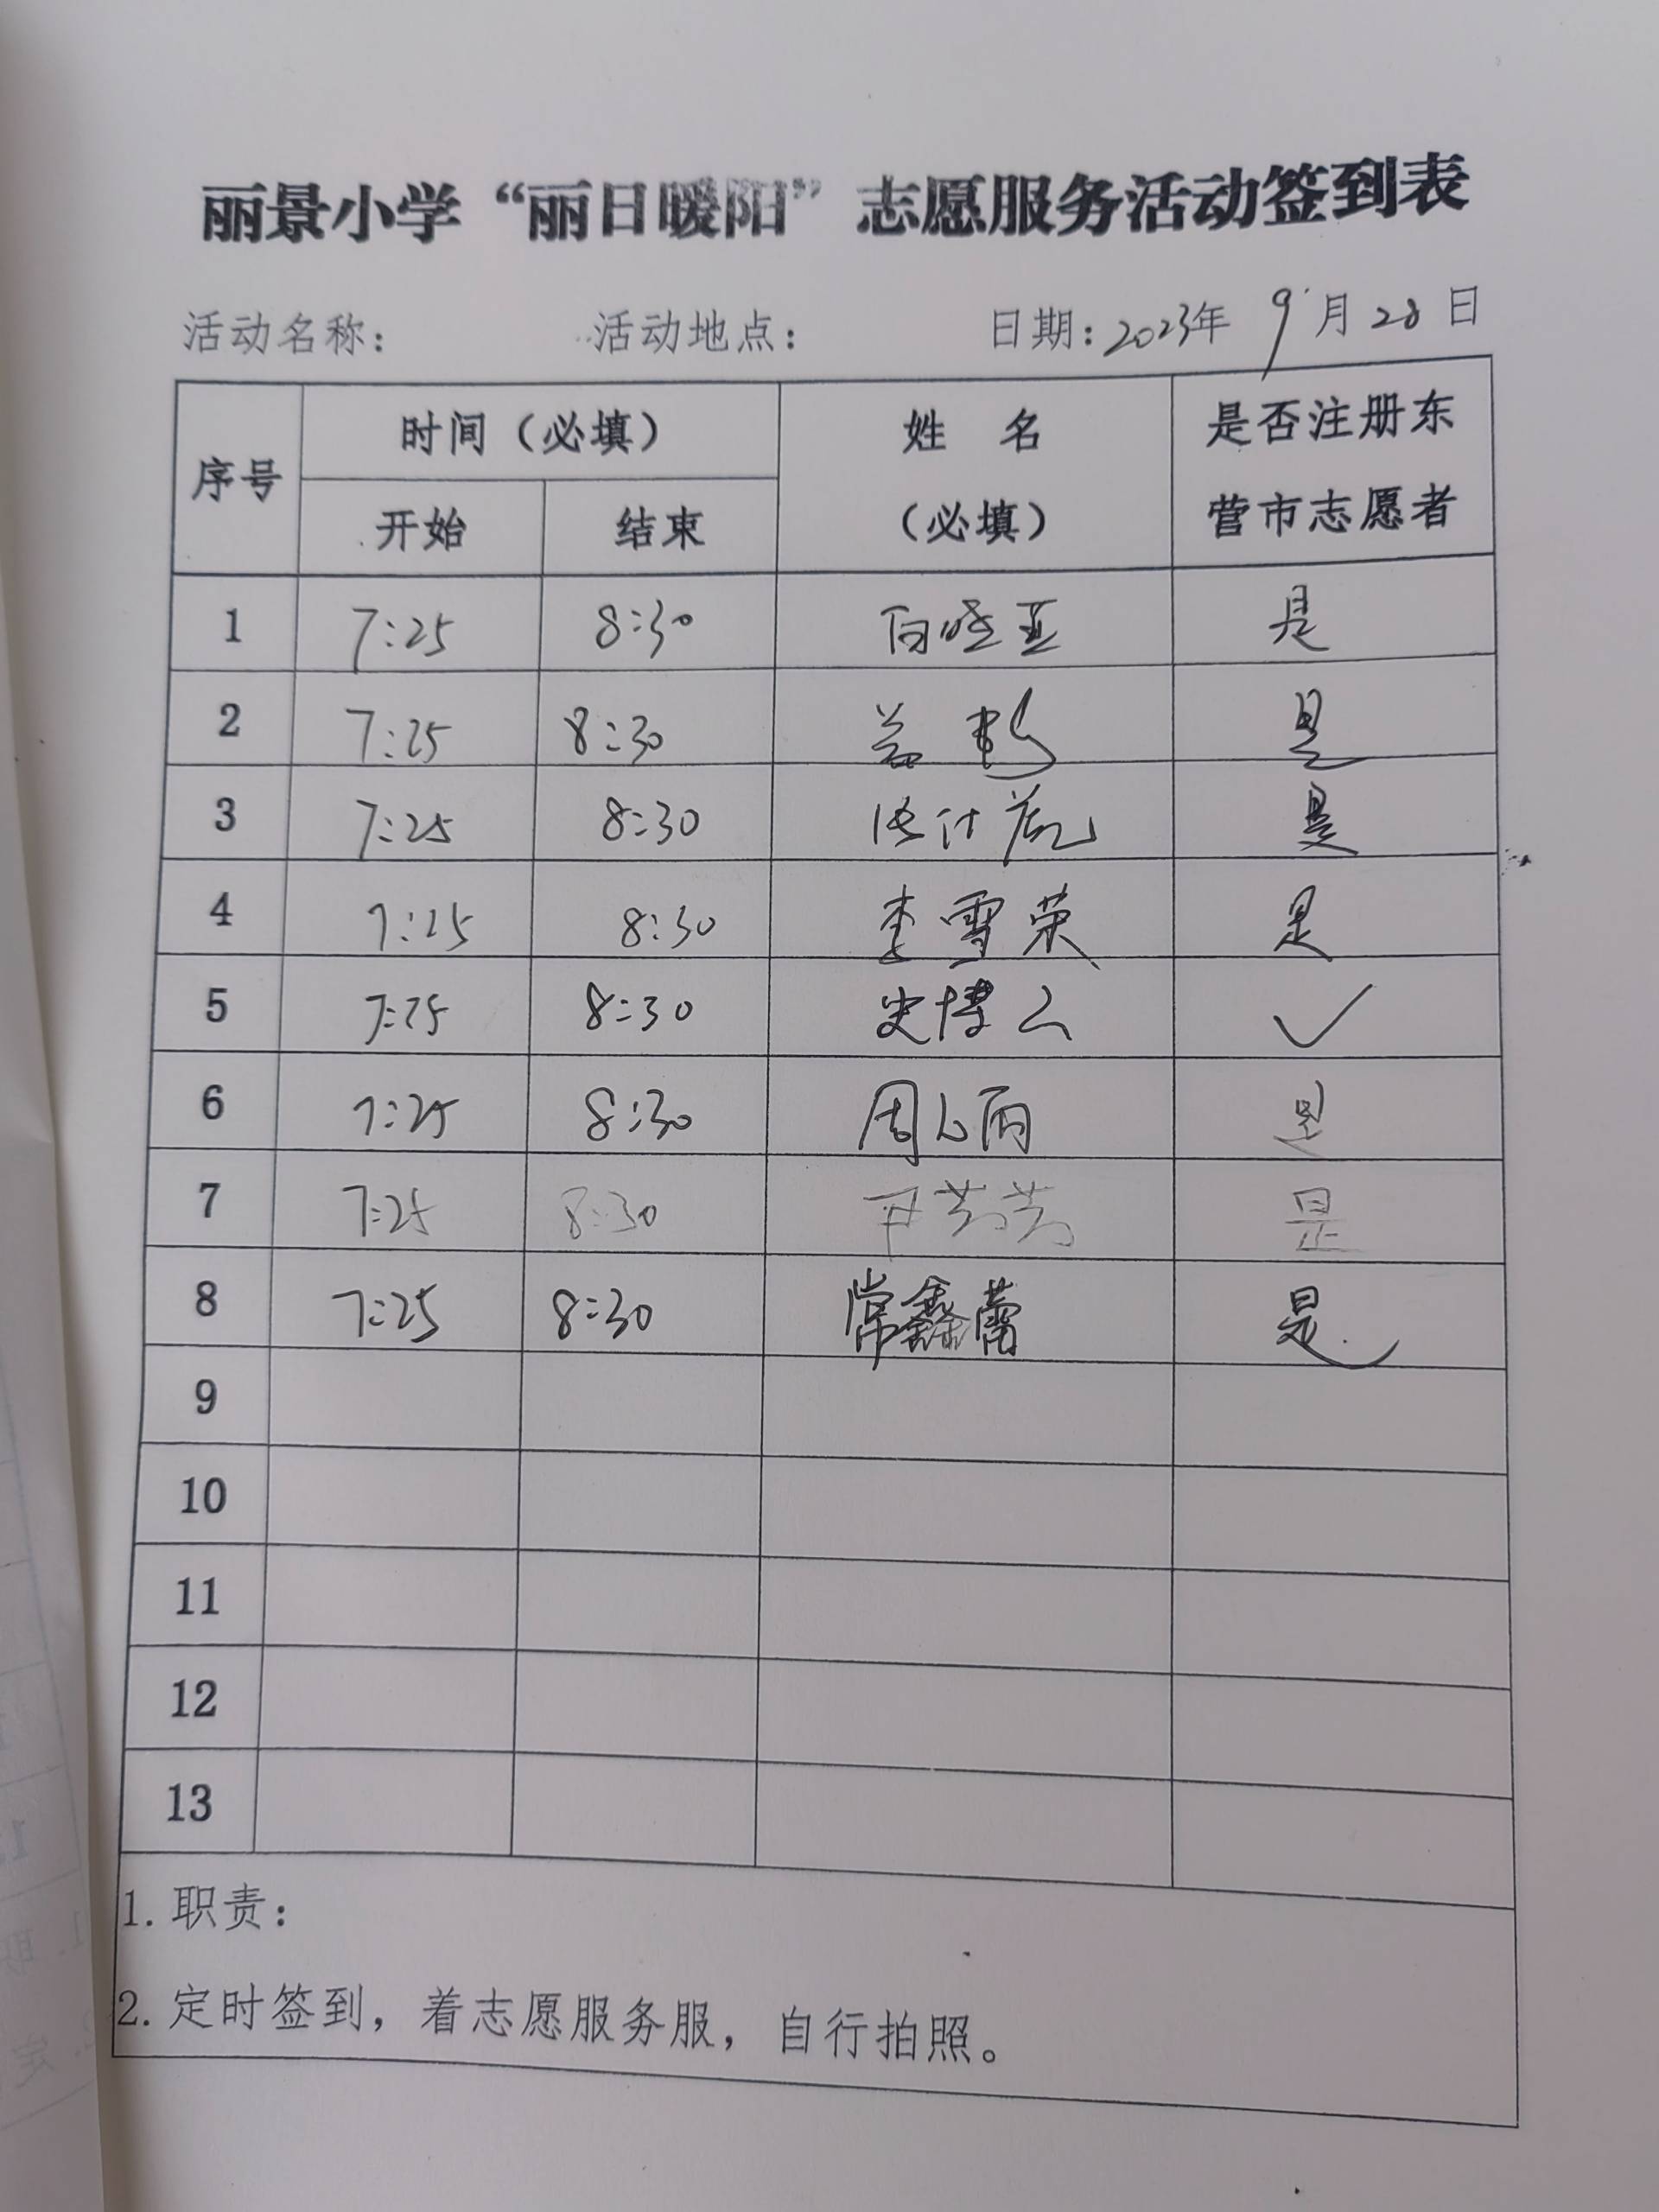 丽景小学“丽日暖阳”志愿服务活动签到表
活动名称： 活动地点： 日期：2023年 9月28日
序号 时间（必填） 姓 名（必填） 是否注册东营市志愿者
开始 结束
1 7:25 8:30 是
2 7:25 8:30 是
3 7:25 8:30 是
4 7:25 8:30 李雪荣 是
5 7:25 8:30 史博 ✓
6 7:25 8:30 周 丽 是
7 7:25 8:30 尹芳芳 是
8 7:25 8:30 常鑫蕾 是.
9
10
11
12
13
1. 职责：
2. 定时签到，着志愿服务服，自行拍照。